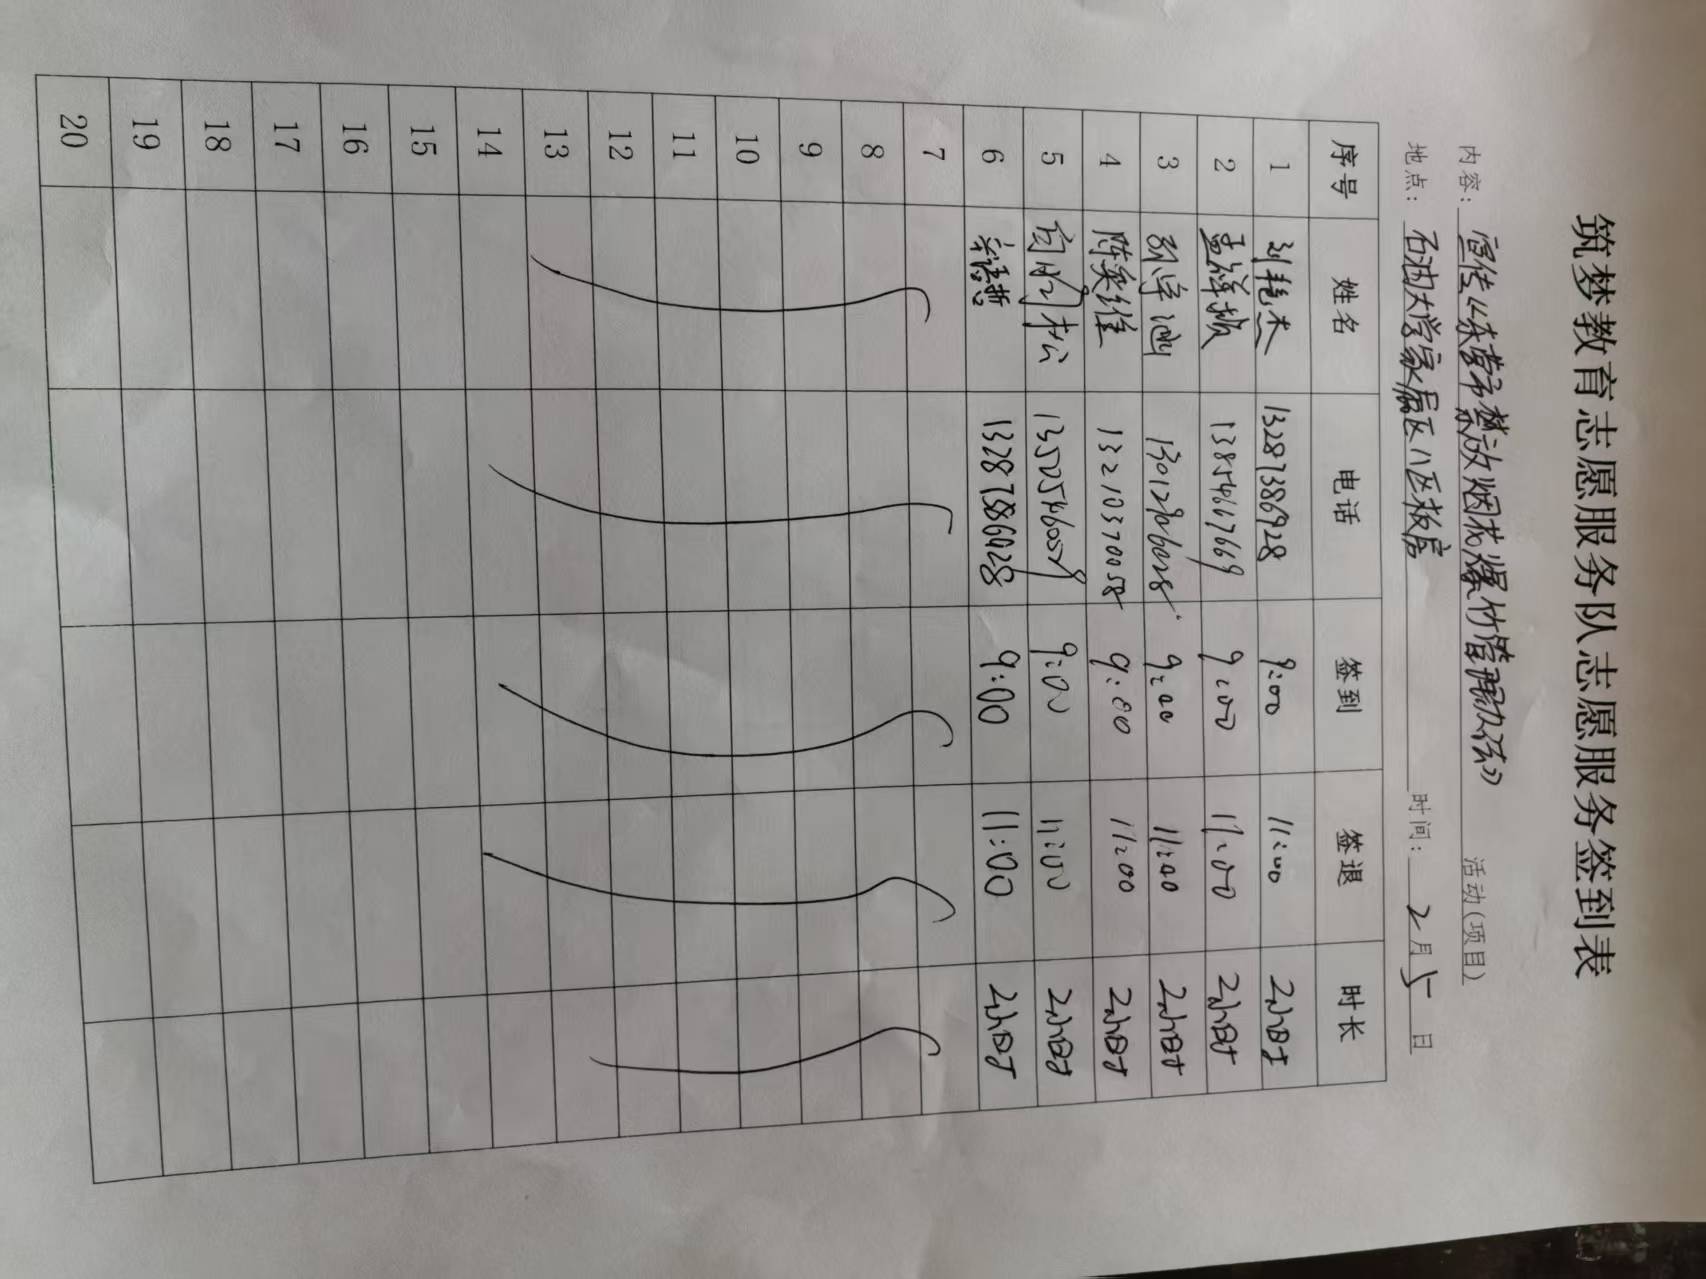 筑梦教育志愿服务队志愿服务签到表
内容：宣传《东营市禁放烟花爆竹管理办法》 活动(项目)
地点：石油大学家属区八区板房 时间：2月5日
序号 姓名 电话 签到 签退 时长
1 刘艳杰 13287386928 9:00 11:00 2小时
2 孟祥频 13854667669 9:00 11:00 2小时
3 孙学 9:00 11:00 2小时
4 陈奕维 13210370058 9:00 11:00 2小时
5 松 9:00 11:00 2小时
6 13287386928 9:00 11:00 2小时
7
8
9
10
11
12
13
14
15
16
17
18
19
20